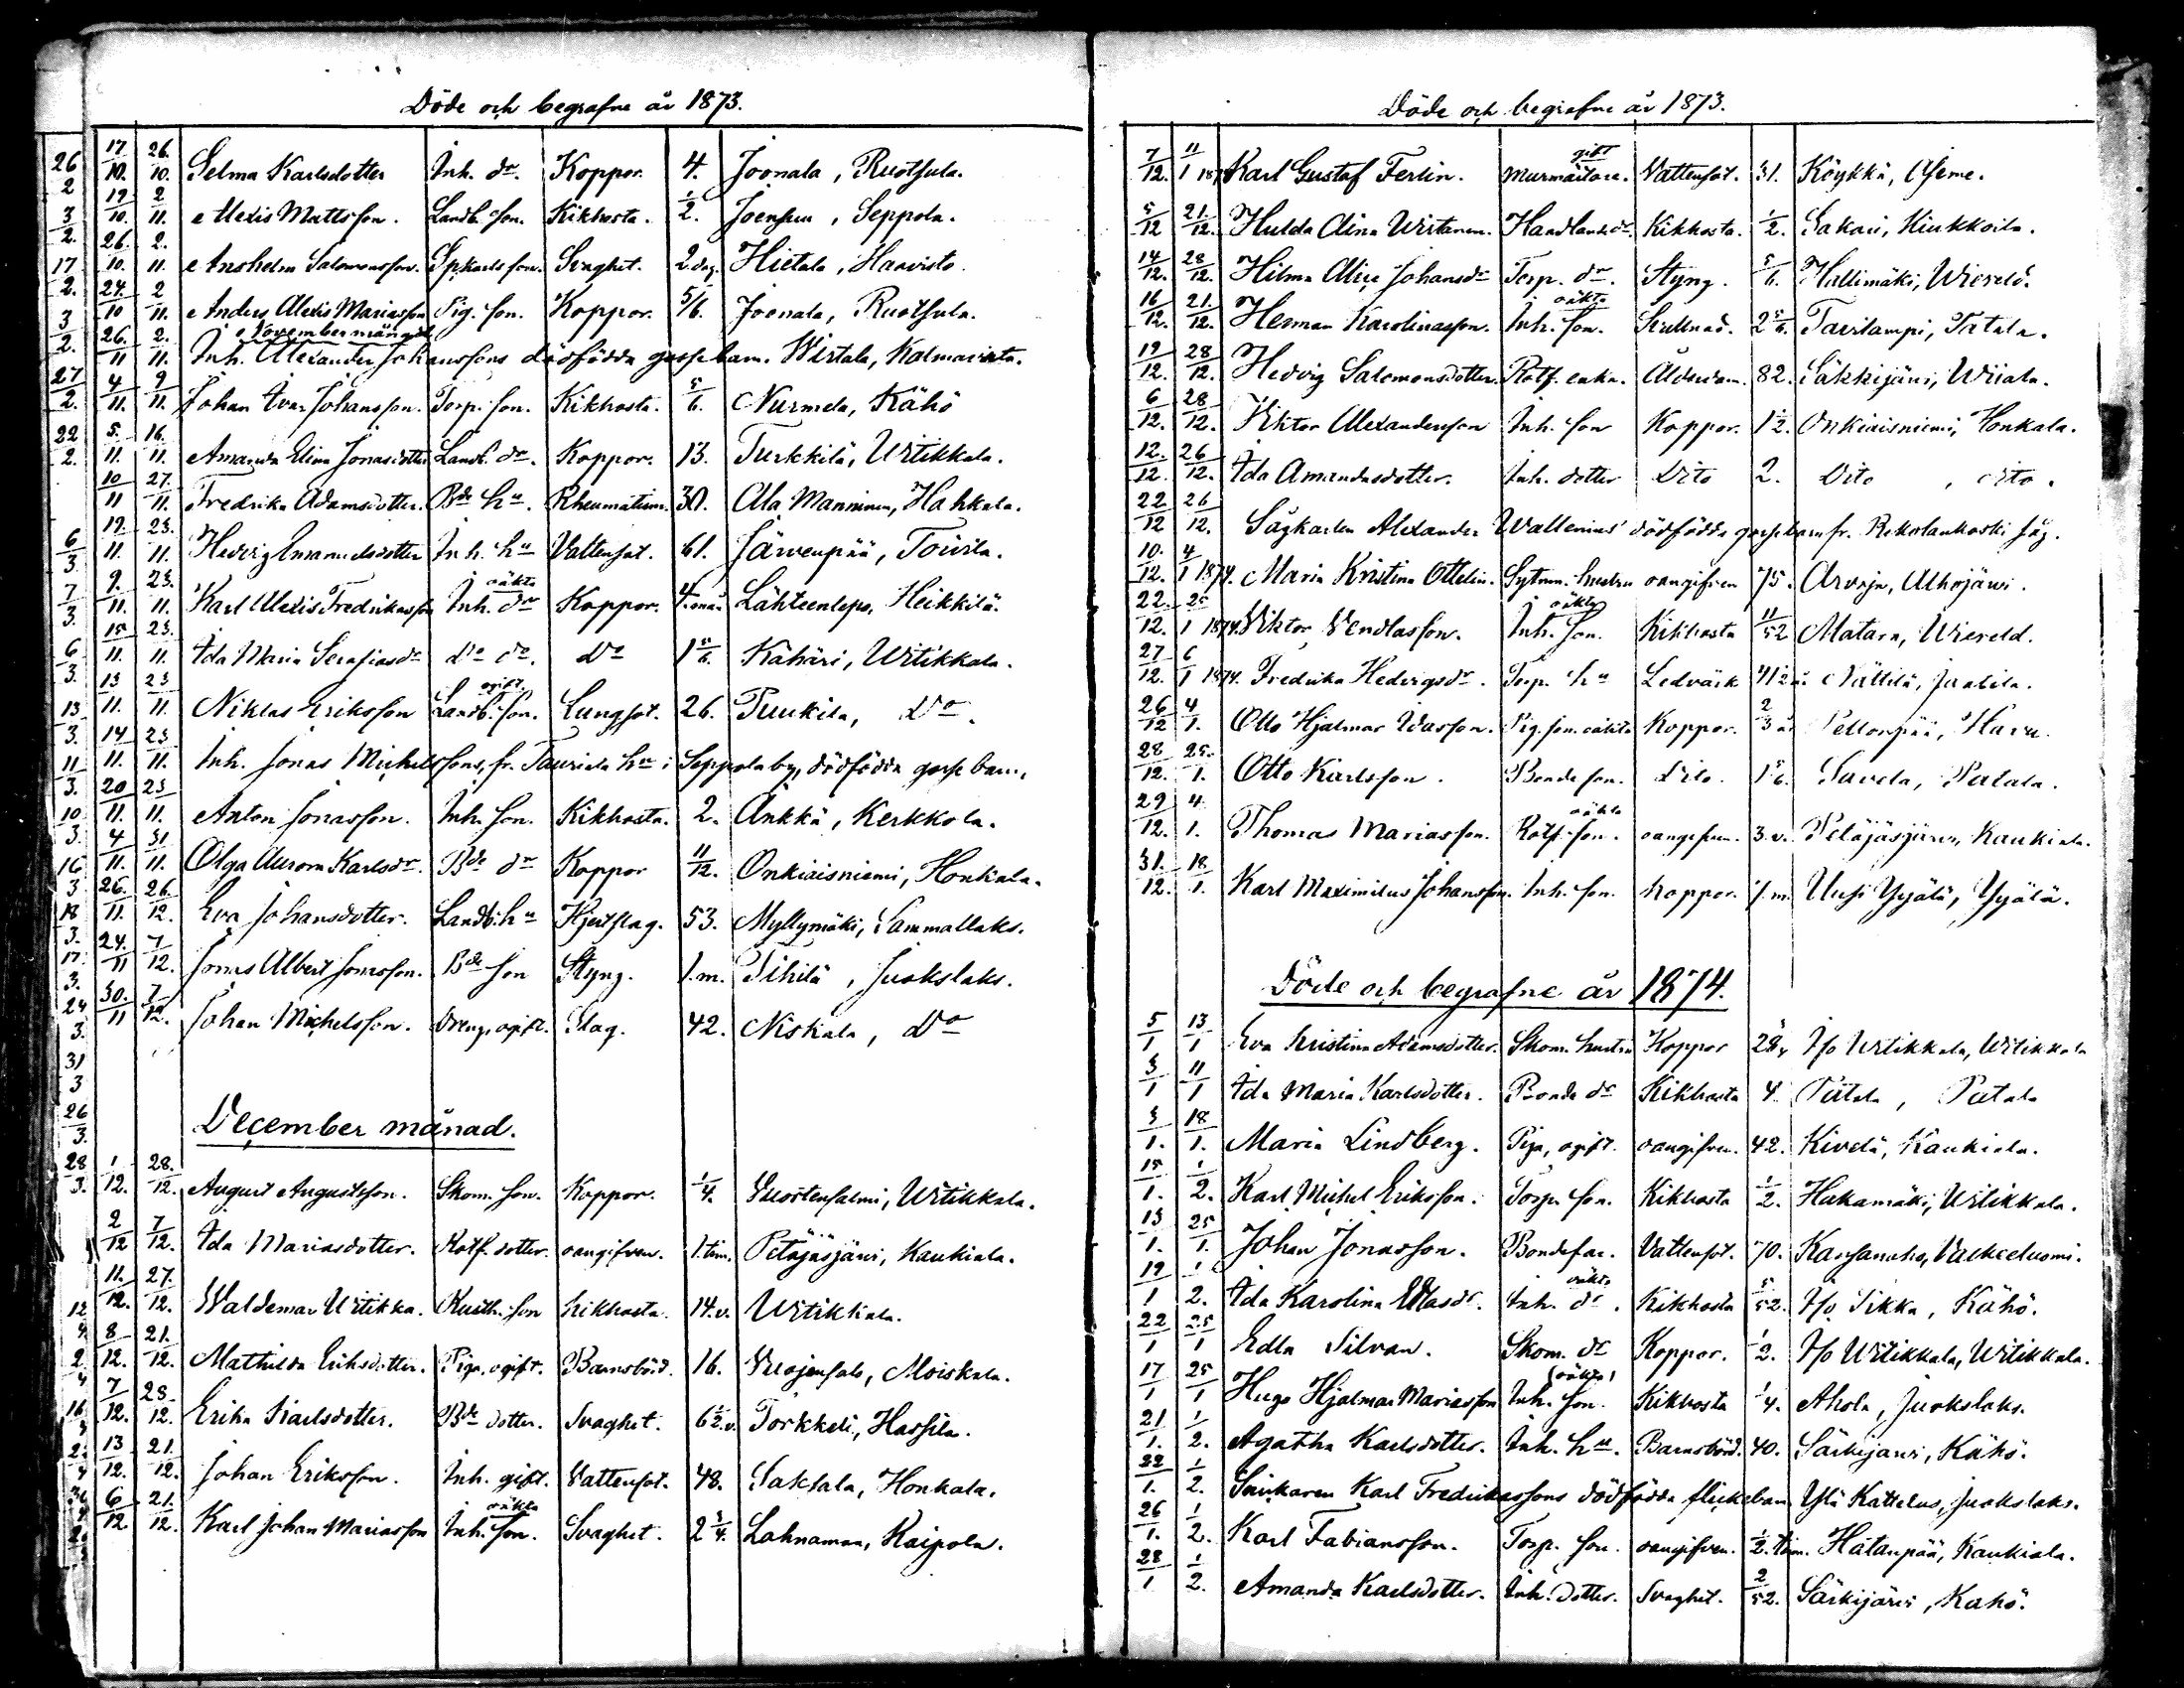 Döde och begrafne år 1873.
17/10. 26./10. Selma Karlsdotter Inh. dr. Koppor. 4. Joonala, Ruotsula.
19/10. 2/11. Alexis Mattsson. Landb. son. Kikhosta. 1/2. Joensuu, Seppola.
26./10. 2./11. Anshelm Salomonsson. Spkarls son. Svaghet. 2 dag. Hietala, Haavisto.
24./10 2/11. Anders Alexis Mariasson Pig. son. Koppor. 5/6. Joonala, Ruotsula.
November månad
26./11 2./11. Inh. Alexander Johanssons dödfödda gossebarn. Wirtala, Kolmavirta.
4/11. 9/11. Johan Ivar Johansson. Torp. son. Kikhosta. 5/6. Nurmela, Kähö
5./11. 16./11. Amanda Elina Jonasdotter Landb. dr. Koppor. 13. Turkkila, Uitikkala.
10/11 27./11. Fredrika Adamsdotter. Bde hu. Rheumatism. 30. Ala Manninen, Hahkala.
12./11. 23./11. Hedvig Emanuelsdotter Inh. hu Vattensot. 61. Järvenpää, Toivila.
9./11. 23./11. Karl Alexis Fredrikasson Inh. oäkta dr Koppor. 4. mån. Lähteenlepo, Heikkilä.
15/11. 23./11. Ida Maria Serafiasdr do do. do 1 5/6. Kähäri, Uitikkala.
13/11. 23/11. Niklas Eriksson Landb. son. ogift Lungsot. 26. Tuukila, do.
14/11. 23/11. Inh. Jonas Michelssons, fr. Tauriala hn i Seppola by, dödfödda gosse barn.
20/11. 23/11. Anton Jonasson. Inh. son. Kikhosta. 2. Änkkä, Kerkkola.
4/11. 31/11. Olga Aurora Karlsdr. Bde dr Koppor 11/12. Onkiaisniemi, Honkala.
26./11. 26./12. Eva Johansdotter. Landb. hu Hjertslag. 53. Myllymäki, Sammallaks.
24./11 7/12. Jonas Albert Jonasson. Bde son Styng. 1. m. Tihilä, Juokslaks.
30./11 7/12. Johan Michelsson. Dreng, ogift. Slag. 42. Niskala, do
December månad.
1/12. 28./12. August Augustsson. Skom. son. Koppor. 1/4. Vuostensalmi, Uitikkala.
2/12 7/12. Ida Mariasdotter. Rotf. dotter. oangifven. 1. tim. Petäjäsjärvi, Kaukiala.
11./12. 27./12. Waldemar Uitikka. Rusth. son kikhosta. 14. v. Uitikkala.
8/12. 21./12. Mathilda Eriksdotter. Piga, ogift. Barnsbörd. 16. Vuojensalo, Moiskala.
7/12. 28/12. Erika Karlsdotter. Bde dotter. Svaghet. 6 1/2 v. Torkkeli, Hassila.
13/12. 21./12. Johan Eriksson. Inh. gift. Vattensot. 48. Saksala, Honkala.
6/12 21./12. Karl Johan Mariasson Inh. son. oäkta Svaghet. 2 3/4. Lahnamaa, Kaipola.
Döde och begrafne år 1873.
7/12. 11/1 1874 Karl Gustaf Ferlin. murmästare. gift Vattensot. 31. Köykkä, Aseme.
5/12 21./12. Hulda Aina Wirtanen. Handlandedr. Kikhosta. 1/2. Sakari, Kiukkoila.
14/12. 28/12. Hilma Alice Johansdr Torp. dr. Styng. 5/6. Hallimäki, Wiereld.
16/12. 21./12. Herman Karolinasson. Inh. son. oäkta 2 5/6. Tavilampi, Patala.
19/12. 28/12. Hedvig Salomonsdotter. Rotf. enka. Ålderdom. 82. Säkkijärvi, Wiiala.
6/12. 28/12. Viktor Alexandersson Inh. son Koppor. 1 1/2. Onkiaisniemi, Honkala.
12./12. 26/12. Ida Amandusdotter. Inh. dotter Dito 2. Dito, dito.
22/12 26/12. Sågkarlen Alexander Wallenius' dödfödda gossebarn fr. Rekolankoski såg.
10./12. 4/1 1874. Maria Kristina Ottelin. Sytnm. hustru oangifven 75. Arvaja, Alhojärvi.
22./12. 25/1 1874. Viktor Vendlasson. Inh. son. oäkta Kikhosta 11/52 Matara, Wiereld.
27/12. 6/1 1874. Fredrika Hedvigsdr. Torp. hu Ledvärk 71 1/2 år Nättilä, Jaatila.
26/12 4/1. Otto Hjalmar Idasson. Pig. son. oäkta Koppor. 2/3 år Pellonpää, Hava.
28/12. 25./1. Otto Karlsson. Bonde son. Dito. 1 5/6. Savela, Patala.
29/12. 4/1. Thomas Mariasson. Rotf. son. oäkta oangifven. 3. v. Petäjäsjärvi, Kaukiala.
31./12. 18/1. Karl Maximilus Johansson. Inh. son. koppor. 7. m. Uusi Yyälä, Yyälä.
Döde och begrafne år 1874.
5/1 13/1 Eva Kristina Adamsdotter. Skom. hustru Koppor 28 H/o Uitikkala, Uitikkala
3/1 11/1 Ida Maria Karlsdotter. Bonde dr Kikhosta 4 Patala, Patala
3/1. 18/1. Maria Lindberg. Piga, ogift. oangifven. 42. Kivelä, Kaukiala.
15/1. 1/2. Karl Michel Eriksson. Torp. son. Kikhosta 1/2. Hakamäki, Uitikkala.
13/1. 25/1. Johan Jonasson. Bondefar. Vattensot. 70. Karsanaho, Valkeeluomi.
19/1 1/2. Ida Karolina Edlasdr. Inh. dr. oäkta Kikhosta 5/52. H/o Sikka, Kähö.
22/1 25/1 Edla Silvan. Skom. dr Koppor. 1/2. H/o Uitikkala, Uitikkala.
17/1 25/1 Hugo Hjalmar Mariasson Inh. son. (oäkta) Kikhosta 1/4. Ahola, Juokslaks.
21/1. 1/2. Agatha Karlsdotter. Inh. hu. Barnsbörd. 40. Särkijärvi, Kähö.
22/1. 1/2. Karl Fredrikassons dödfödda flickebarn Ylä Kattelus, Juokslaks.
26/1. 1/2. Karl Fabiansson. Torp. son. oangifven. 1/2. tim. Hatanpää, Kaukiala.
28/1 1/2. Amanda Karlsdotter. Inh. dotter. Svaghet. 2/52. Särkijärvi, Kähö.